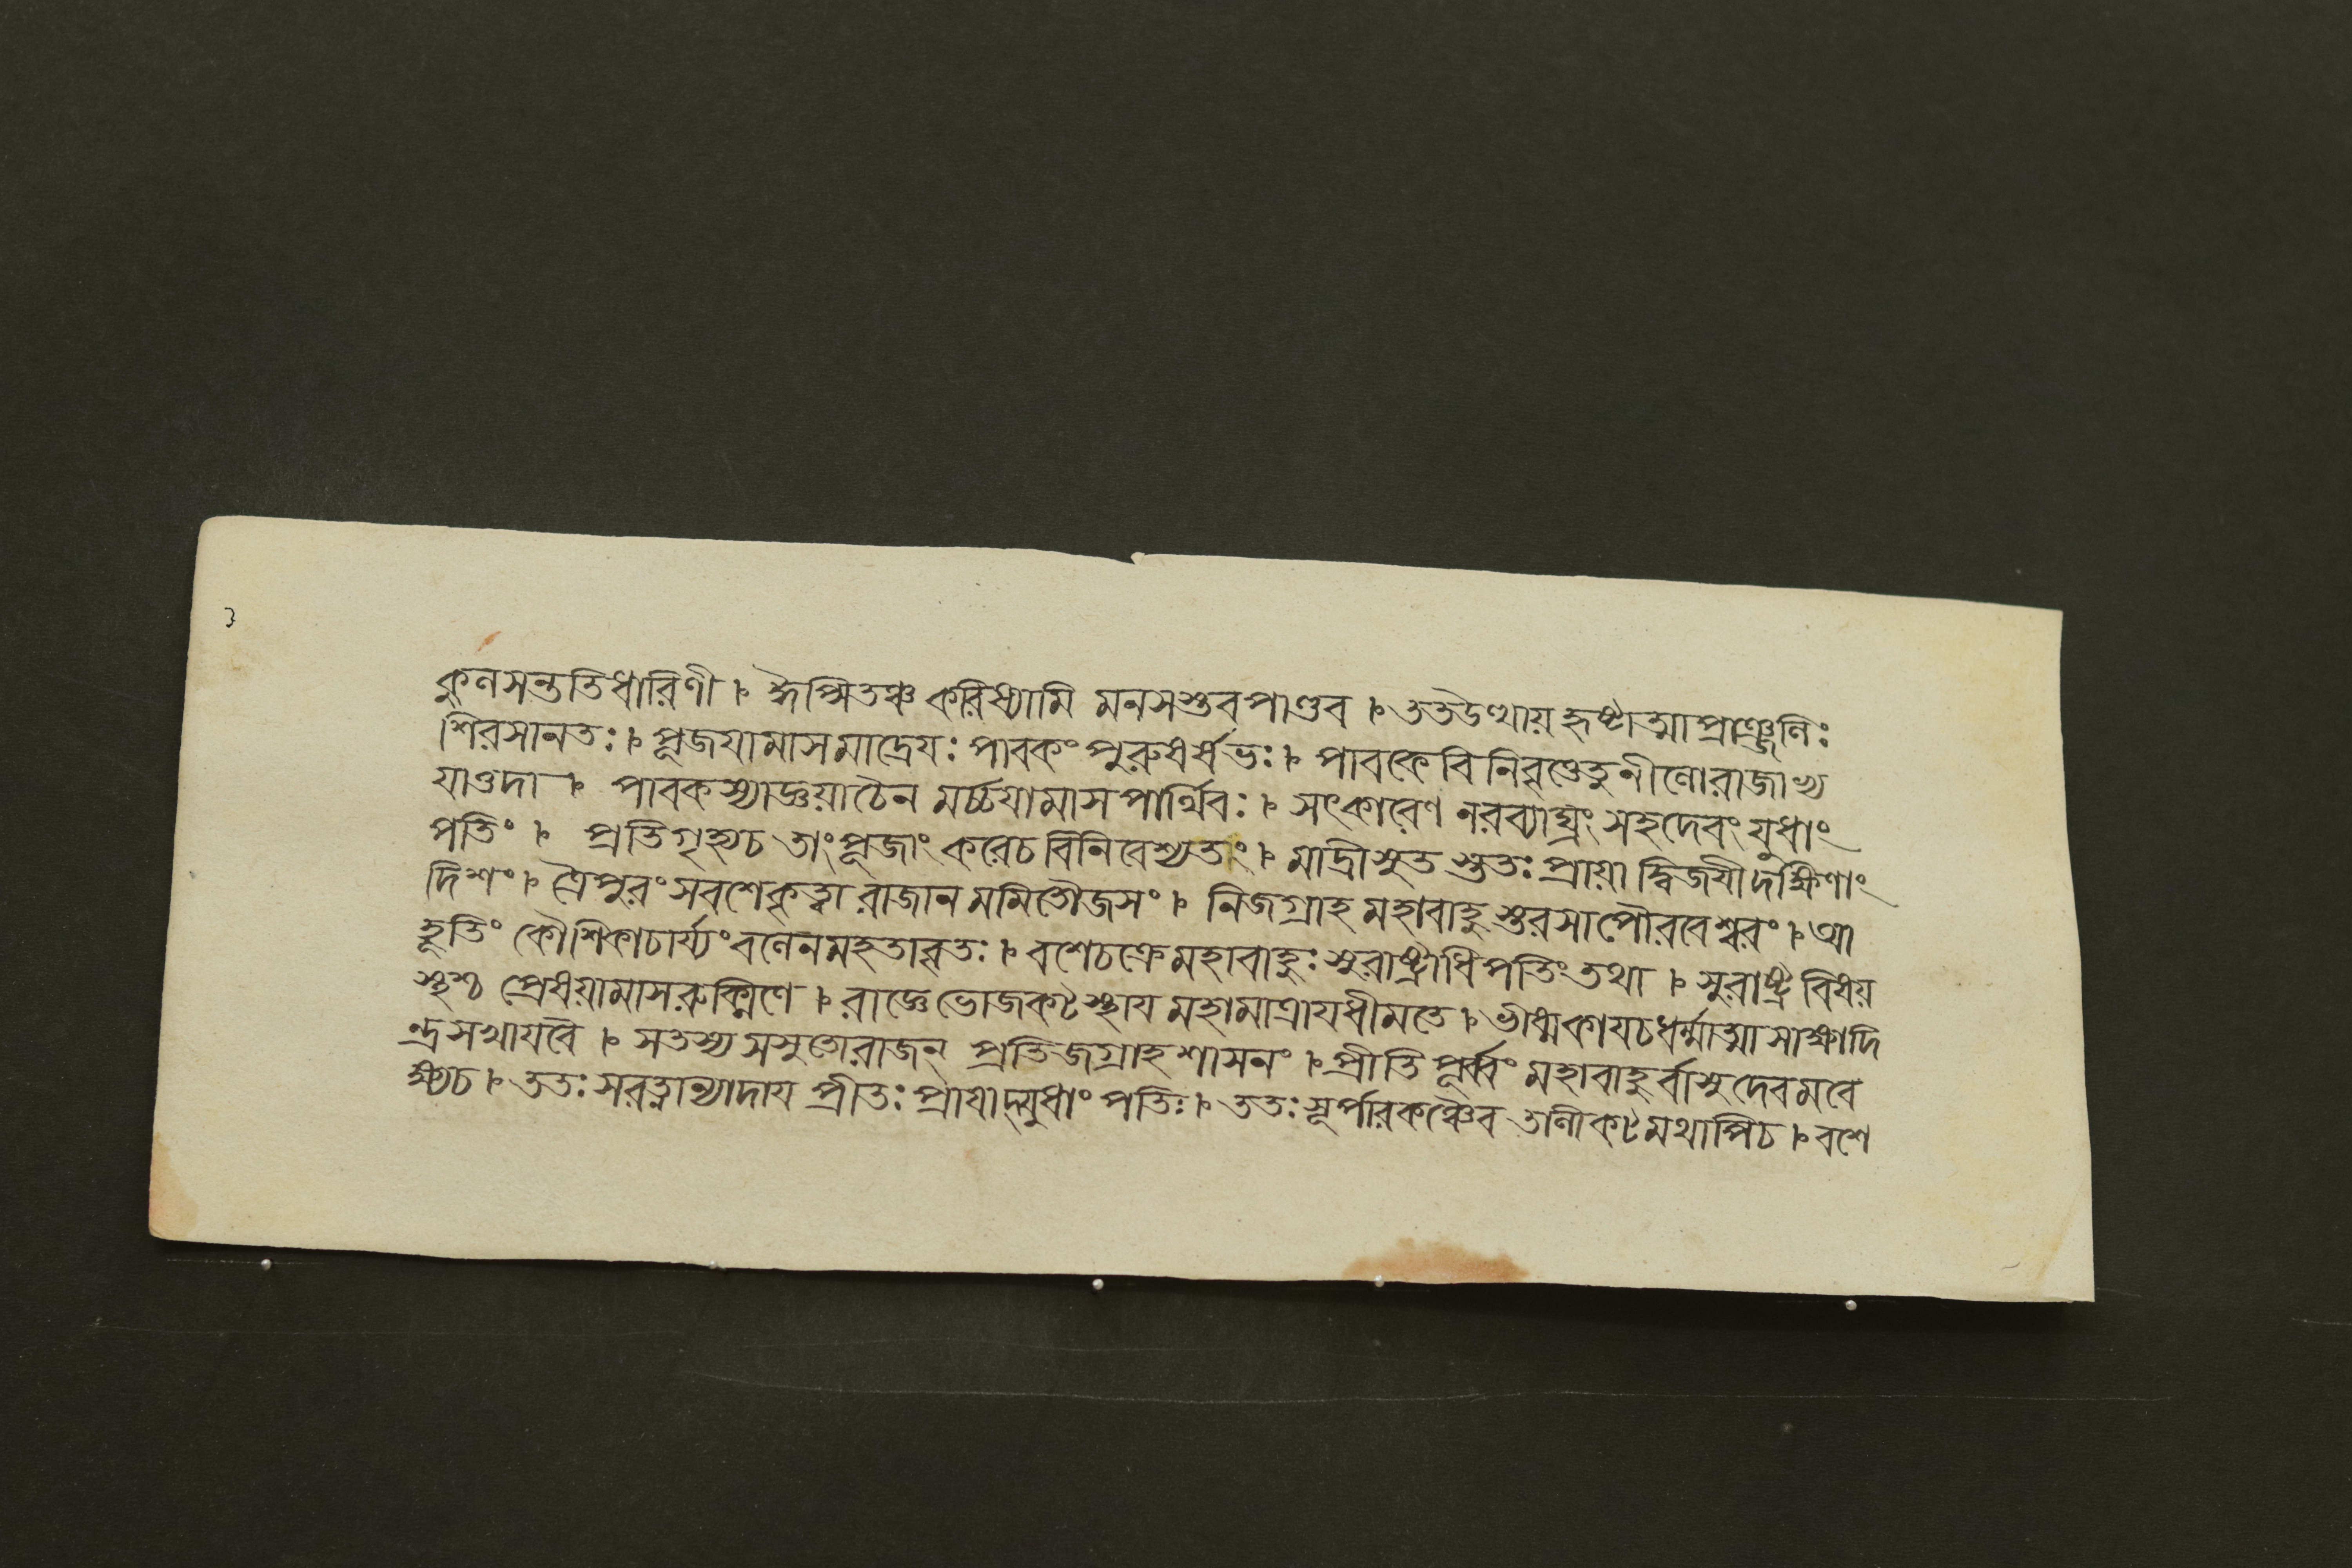 কুলসন্ততিধারিণী । ঈপ্সিতঞ্চ করিষ্যামি মনসস্তুবপাণ্ডব । ততউত্থায় হৃষ্টাত্মা প্রাঞ্জুলিঃ
শিরসানতঃ । পূজযামাসমাদ্রেযঃ পাবকং পুরুষর্ষভঃ । পাবকে বিনিবৃত্তেতুনীলোরাজাভ্য
যাওদা । পাবকস্যাজ্ঞয়াচৈন মর্চ্চযামাস পার্থিবঃ । সৎকারেণ নরব্যাঘ্রং সহদেবং যুধাং
পতিং । প্রতিগৃহ্যচ তাংপূজাং করেচ বিনিবেশ্যতং । মাদ্রীসুত স্তুতঃ প্রায়া দ্বিজযী দক্ষিণাং
দিশং । ত্রৈপুরং সবশেকৃত্বা রাজান মমিতৌজসং । নিজগ্রাহ মহাবাহু স্তরসা পৌরবেশ্বরং । আ
হূতিং কৌশিকাচার্য্যং বলেনমহতাবৃতঃ । বশেচক্রে মহাবাহুঃ সুরাষ্ট্রাধিপতিং তথা । সুরাষ্ট্র বিষয়
স্থশ্চ প্রেষয়ামাসরুক্মিণে । রাজ্ঞে ভোজকটস্থায মহামাত্রাযধীমতে । ভীষ্মকাযচধর্ম্মাত্মা সাক্ষাদি
ন্দ্রসখাযবৈ । সতস্য সসুতোরাজন্ প্রতিজগ্রাহ শাসনং । প্রীতি পূর্ব্বং মহাবাহুর্বাসুদেবমবে
ক্ষ্যচ । ততঃ সরত্নান্যাদায প্রীতঃ প্রাযাদ্যুধাং পতিঃ । ততঃ সূর্পারকঞ্চৈব তালীকটমথাপিচ । বশে